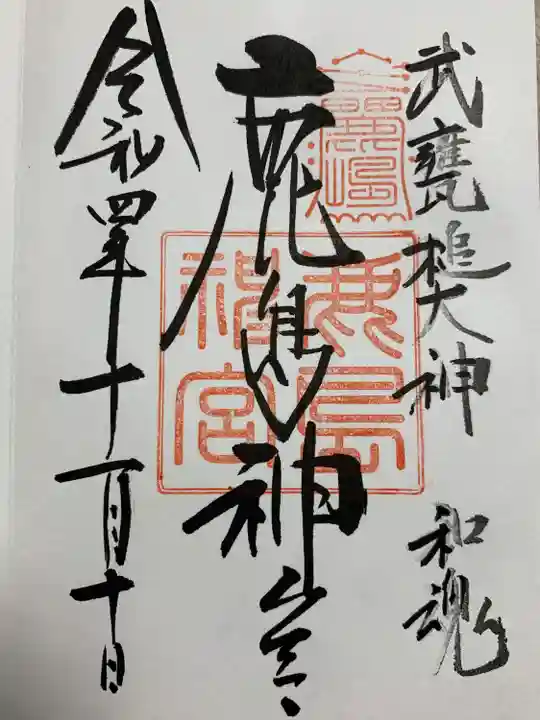 武甕槌大神 和魂
鹿嶋
鹿島神宮
鹿島神宮
令和四年十一月十日